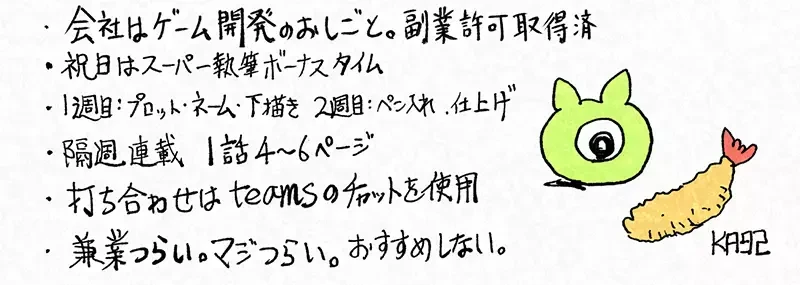 ・会社はゲーム開発のおしごと。副業許可取得済
・祝日はスーパー執筆ボーナスタイム
・1週目:プロット・ネーム・下描き 2週目:ペン入れ.仕上げ
・隔週連載 1話4〜6ページ
・打ち合わせはteamsのチャットを使用
・兼業つらい。マジつらい。おすすめしない。